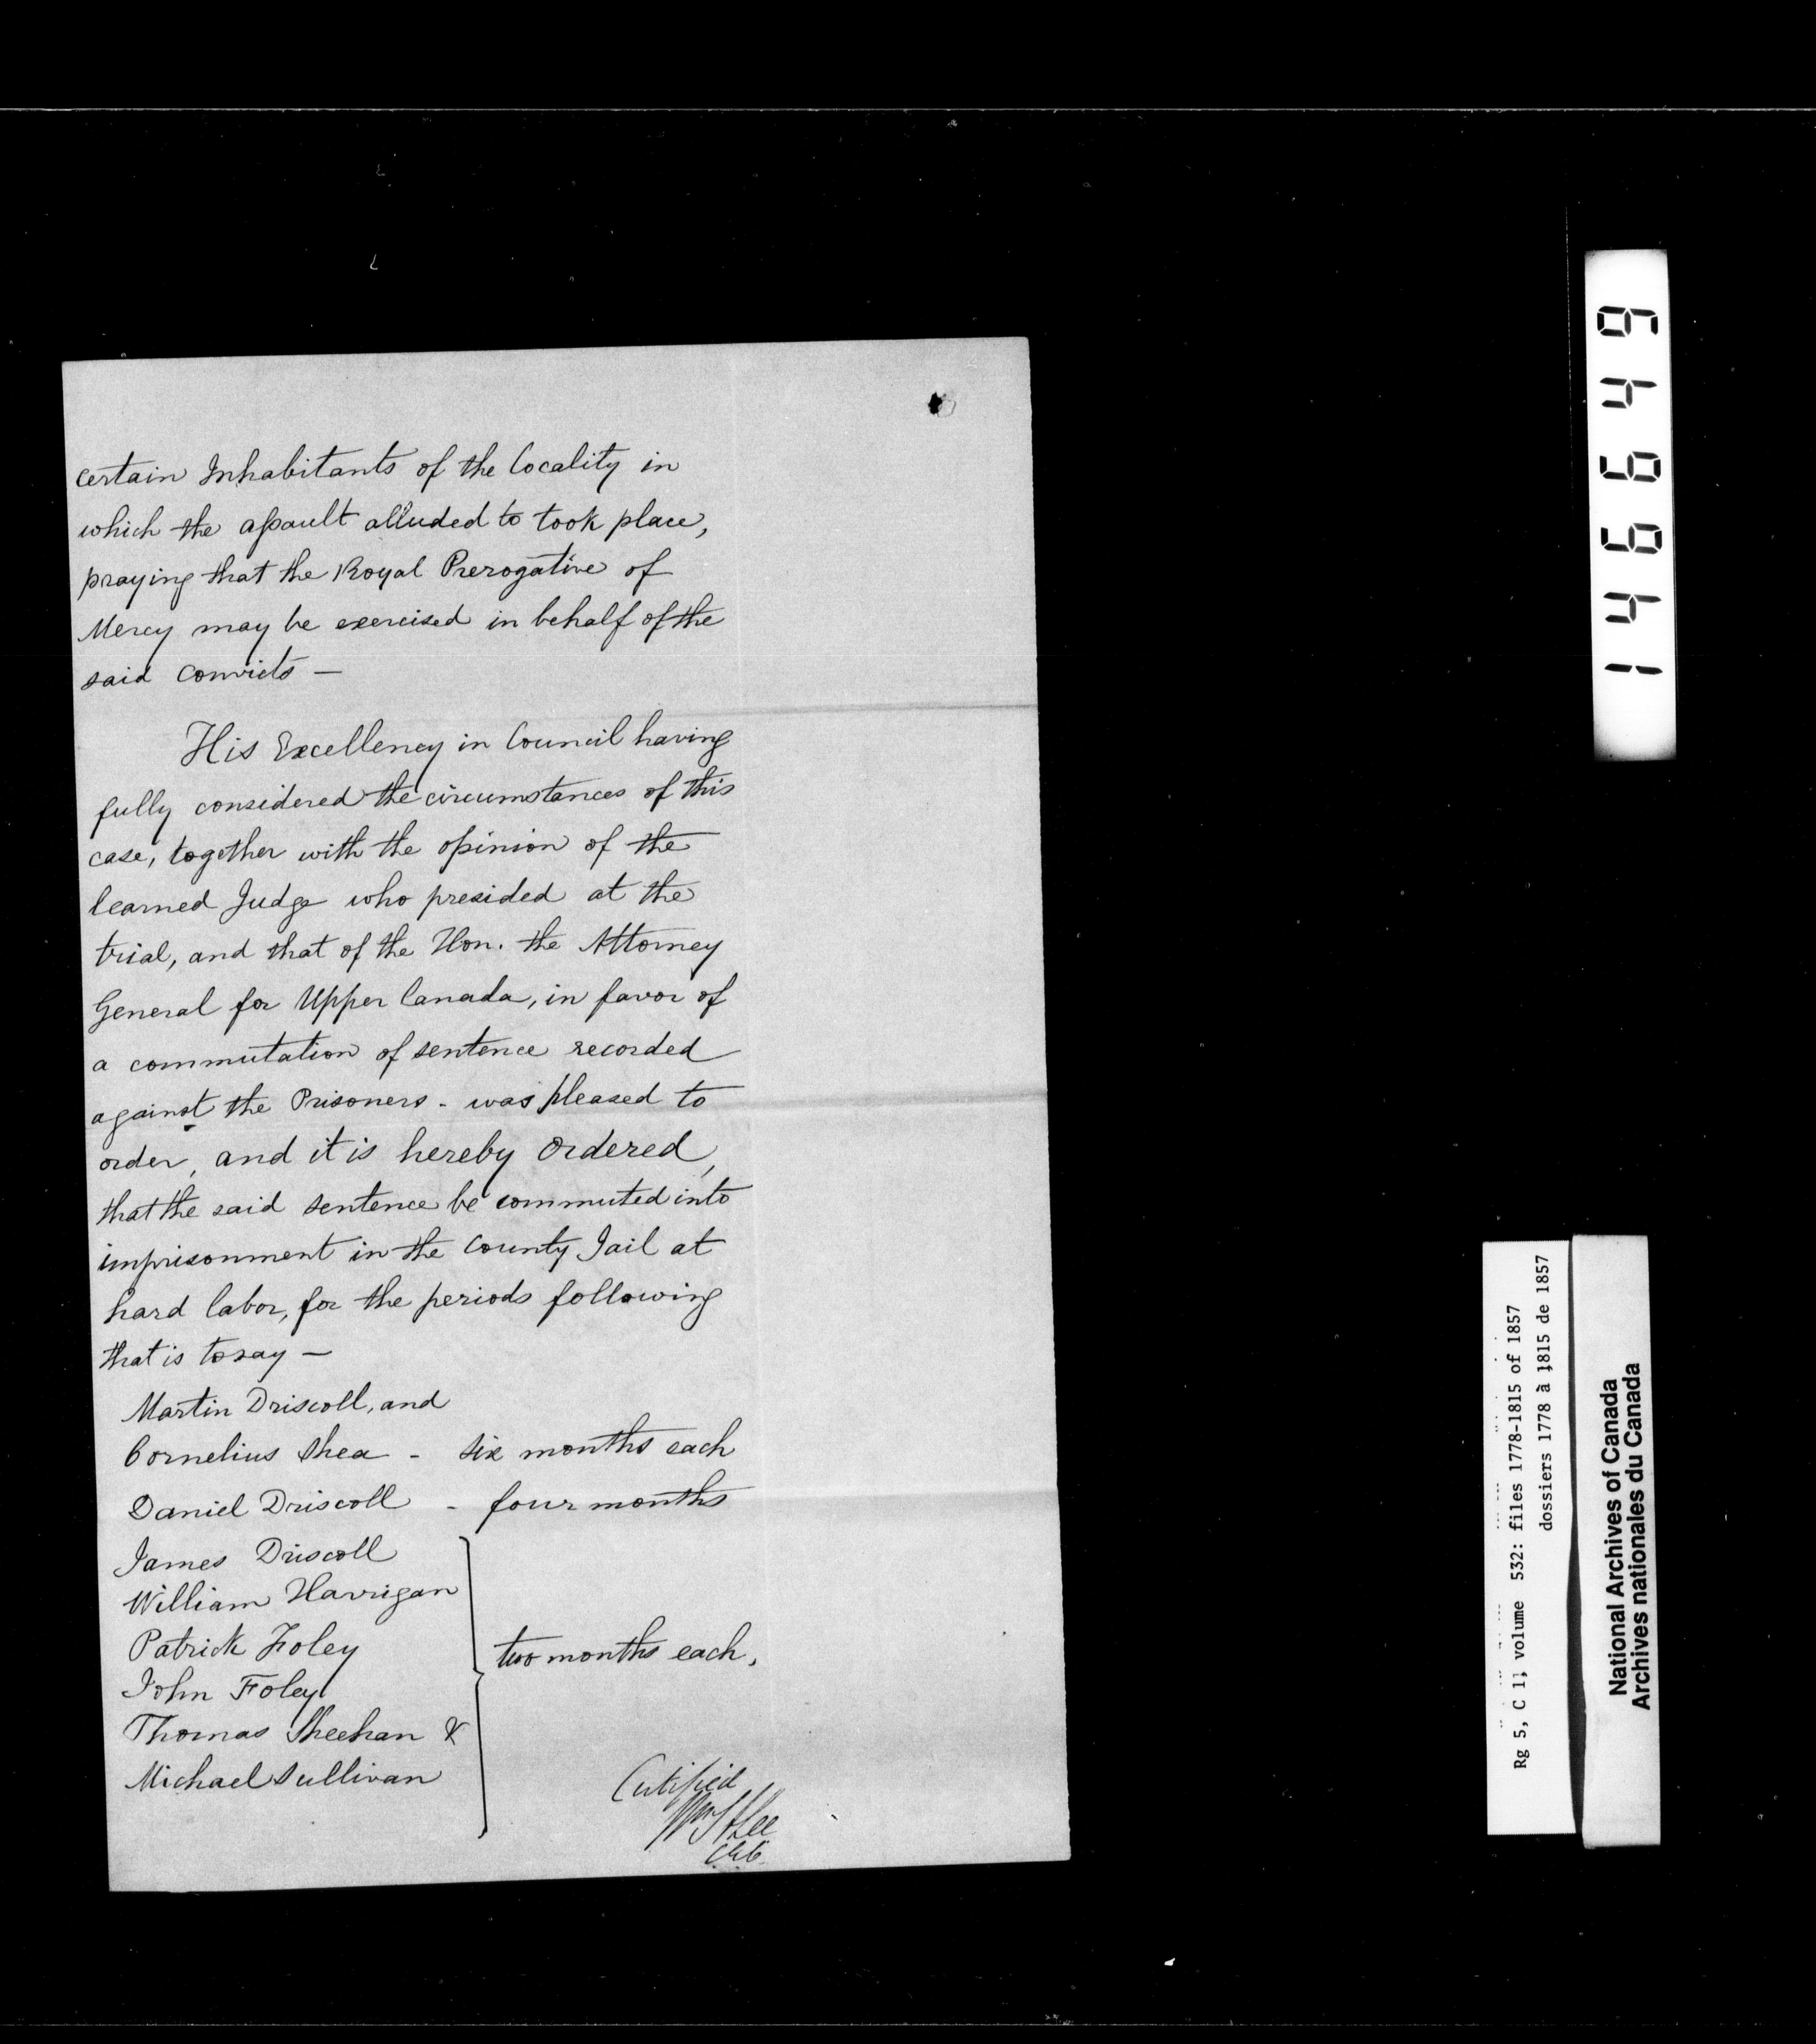 certain Inhabitants of the locality in
which the assault alluded to took place,
praying that the Royal Prerogative of
Mercy may be exercised in behalf of the
said convicts —
His Excellency in Council having
fully considered the circumstances of this
case, together with the opinion of the
learned Judge who presided at the
trial, and that of the Hon. the Attorney
General for Upper Canada, in favor of
a commutation of sentence recorded
against the Prisoners - was pleased to
order, and it is hereby ordered,
that the said sentence be commuted into
imprisonment in the County Jail at
hard labor, for the periods following
that is to say —
Martin Driscoll, and
Cornelius Shea - six months each
Daniel Driscoll - four months
James Driscoll
William Harrigan
Patrick Foley
two months each.
John Foley
Thomas Sheehan &
Michael Sullivan
Certified
Wm H Lee
C.E.C.
146649
Rg 5, C 1, volume 532: files 1778-1815 of 1857
dossiers 1778 à 1815 de 1857
National Archives of Canada
Archives nationales du Canada